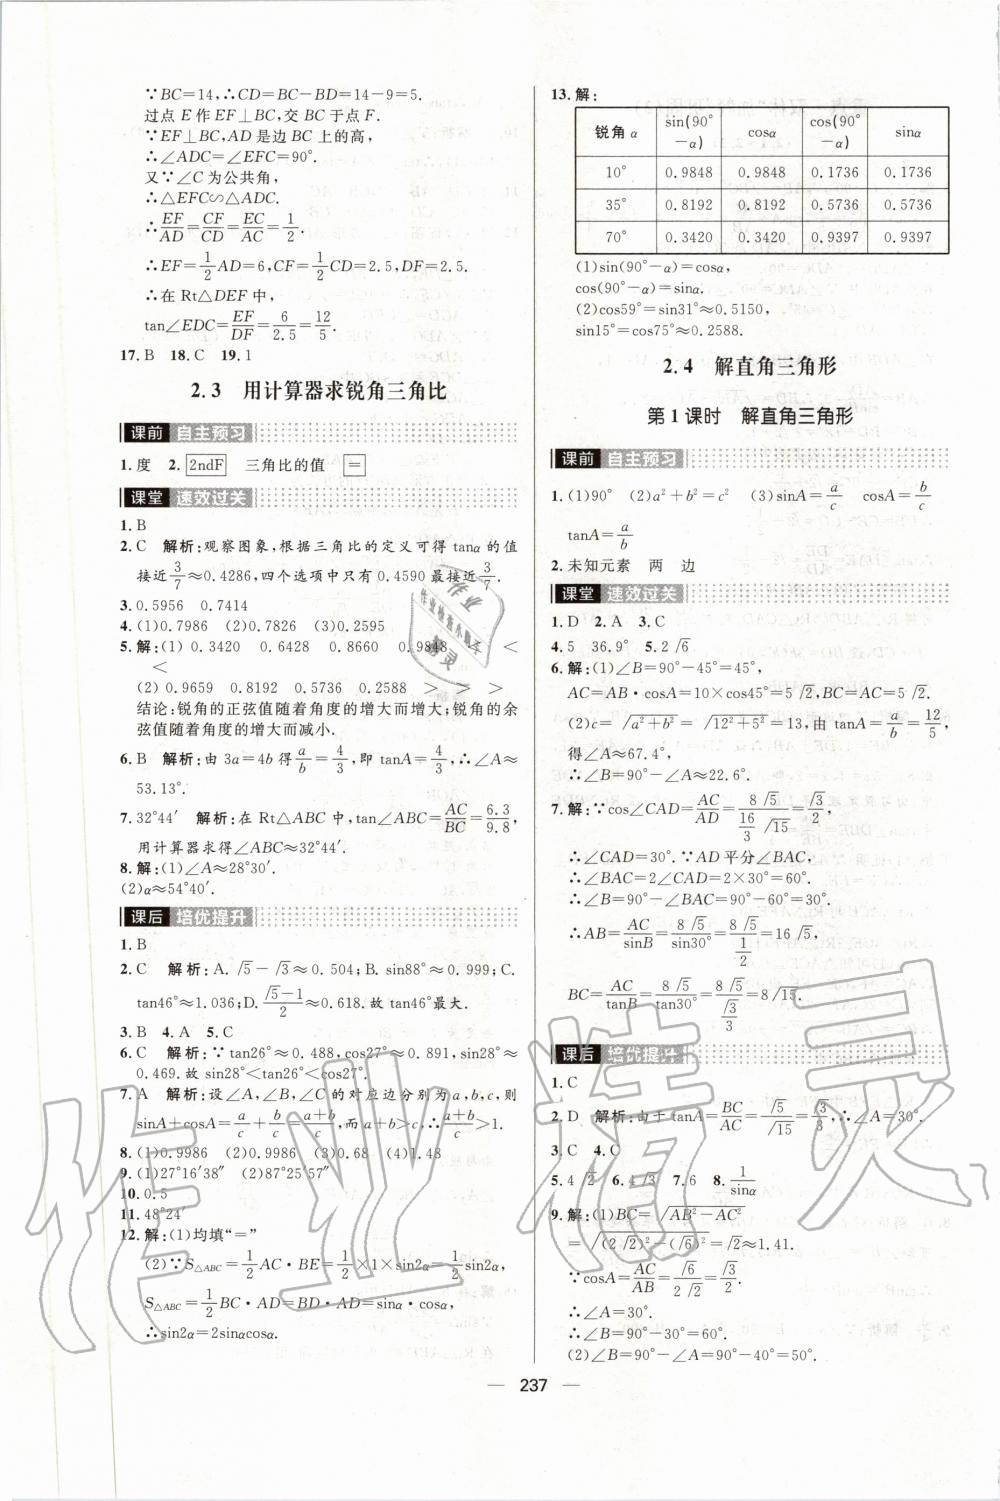 ∵BC=14,∴CD=BC-BD=14-9=5.
过点 E 作 EF⊥BC,交 BC 于点 F.
∵EF⊥BC,AD 是边 BC 上的高,
∴∠ADC=∠EFC=90°.
又∵∠C 为公共角,
∴△EFC∽△ADC.
∴EF/AD=CF/CD=EC/AC=1/2.
∴EF=1/2AD=6,CF=1/2CD=2.5,DF=2.5.
∴在 Rt△DEF 中,
tan∠EDC=EF/DF=6/2.5=12/5.
17.B 18.C 19.1
2.3 用计算器求锐角三角比
课前 自主预习
1.度 2.2ndF 三角比的值 =
课堂 速效过关
1.B
2.C 解析:观察图象,根据三角比的定义可得 tanα 的值
接近3/7≈0.4286,四个选项中只有 0.4590 最接近3/7.
3.0.5956 0.7414
4.(1)0.7986 (2)0.7826 (3)0.2595
5.解:(1) 0.3420 0.6428 0.8660 0.9848 < <
<
(2) 0.9659 0.8192 0.5736 0.2588 > > >
结论:锐角的正弦值随着角度的增大而增大;锐角的余
弦值随着角度的增大而减小.
6.B 解析:由 3a=4b 得a/b=4/3,即 tanA=4/3,∴∠A≈
53.13°.
7.32°44′ 解析:在 Rt△ABC 中,tan∠ABC=AC/BC=6.3/9.8,
用计算器求得∠ABC≈32°44′.
8.解:(1)∠A≈28°30′.
(2)α≈54°40′.
课后 培优提升
1.B
2.C 解析:A.√5-√3≈0.504;B.sin88°≈0.999;C.
tan46°≈1.036;D.(√5-1)/2≈0.618.故 tan46°最大.
3.B 4.A 5.C
6.C 解析:∵tan26°≈0.488,cos27°≈0.891,sin28°≈
0.469.故 sin28°<tan26°<cos27°.
7.A 解析:设∠A,∠B,∠C 的对应边分别为 a,b,c,则
sinA+cosA=a/c+b/c=(a+b)/c,而 a+b>c,∴(a+b)/c>1.
8.(1)0.9986 (2)0.9986 (3)0.68 (4)1.48
9.(1)27°16′38″ (2)87°25′57″
10.0.5
11.48°24′
12.解:(1)均填“=”
(2)∵S△ABC=1/2AC·BE=1/2×1×sin2α=1/2sin2α,
S△ABC=1/2BC·AD=BD·AD=sinα·cosα,
∴sin2α=2sinαcosα.
13.解:
锐角 α sin(90°-α) cosα cos(90°-α) sinα
10° 0.9848 0.9848 0.1736 0.1736
35° 0.8192 0.8192 0.5736 0.5736
70° 0.3420 0.3420 0.9397 0.9397
(1)sin(90°-α)=cosα,
cos(90°-α)=sinα.
(2)cos59°=sin31°≈0.5150,
sin15°=cos75°≈0.2588.
2.4 解直角三角形
第 1 课时 解直角三角形
课前 自主预习
1.(1)90° (2)a²+b²=c² (3)sinA=a/c cosA=b/c
tanA=a/b
2.未知元素 两 边
课堂 速效过关
1.D 2.A 3.C
4.5 36.9° 5.2√6
6.解:(1)∠B=90°-45°=45°,
AC=AB·cosA=10×cos45°=5√2,BC=AC=5√2.
(2)c=√(a²+b²)=√(12²+5²)=13,由 tanA=a/b=12/5,
得∠A≈67.4°,
∴∠B=90°-∠A≈22.6°.
7.解:∵cos∠CAD=AC/AD=8√5/(16/3√15)=√3/2,
∴∠CAD=30°.∵AD 平分∠BAC,
∴∠BAC=2∠CAD=2×30°=60°.
∴∠B=90°-∠BAC=90°-60°=30°.
∴AB=AC/sinB=8√5/sin30°=8√5/(1/2)=16√5,
BC=AC/tanB=8√5/tan30°=8√5/(√3/3)=8√15.
课后 培优提升
1.C
2.D 解析:由于 tanA=BC/AC=√5/√15=√3/3,∴∠A=30°.
3.C 4.C
5.4√2 6.4√3 7.6 8.1/sinα
9.解:(1)BC=√(AB²-AC²)
=√((2√2)²-(√6)²)=√2≈1.41.
∵cosA=AC/AB=√6/2√2=√3/2,
∴∠A=30°.
∴∠B=90°-30°=60°.
(2)∠B=90°-∠A=90°-40°=50°.
— 237 —
作业精灵
作业
作业检查小助手
精灵